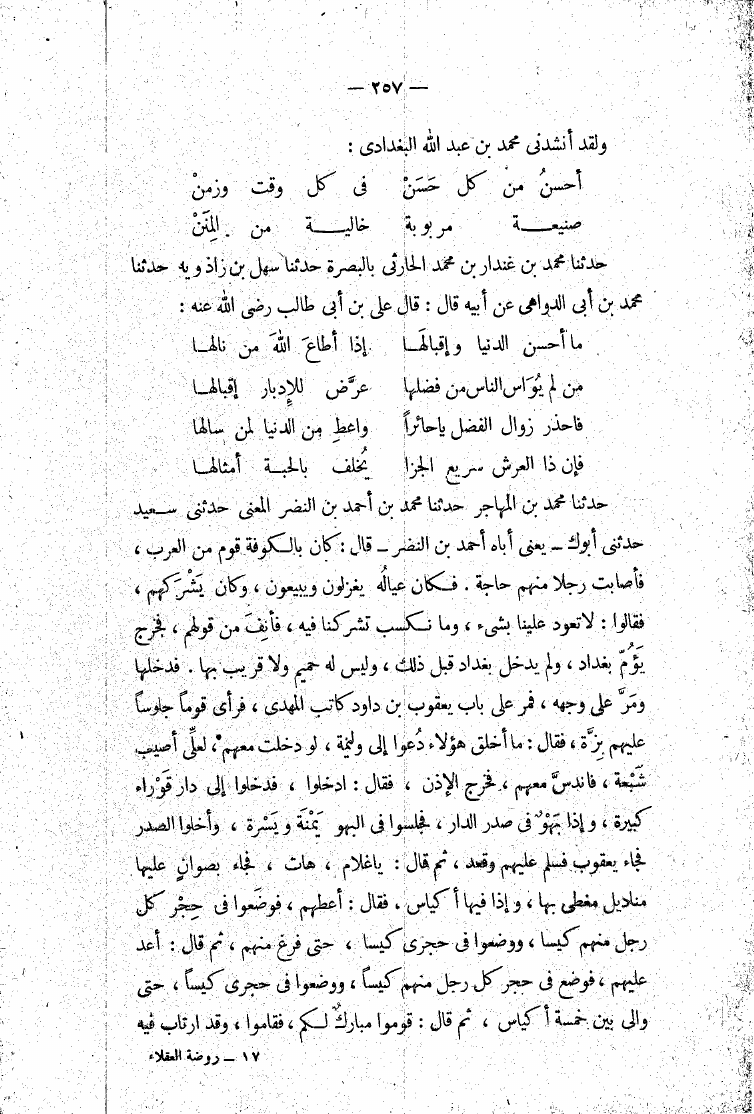 — ٢٥٧ —
ولقد أنشدنى محمد بن عبد الله البغدادى :
أحسنُ من كل حَسَنْ فى كل وقت وزمنْ
صنيعـــة مربوبة خاليــــة من المِنَنْ
حدثنا محمد بن غندار بن محمد الحارثى بالبصرة حدثنا سهل بن زاذويه حدثنا
محمد بن أبى الدواهى عن أبيه قال : قال على بن أبى طالب رضى الله عنه :
ما أحسن الدنيا وإقبالَهَـا إذا أطاعَ اللهَ من نالهـا
من لم يُوَاسِ الناس من فضلها عرَّض للإدبار إقبالهـا
فاحذر زوال الفضل ياحائراً واعطِ من الدنيا لمن سالها
فإن ذا العرش سريع الجزا يُخلف بالحبـة أمثالهـا
حدثنا محمد بن المهاجر حدثنا محمد بن أحمد بن النضر المعنى حدثنى سـعيد
حدثنى أبوك ــ يعنى أباه أحمد بن النضر ــ قال : كان بالـكوفة قوم من العرب ،
فأصابت رجلا منهم حاجة . فـكان عيالُه يغزلون ويبيعون ، وكان يَشْرَكهم ،
فقالوا : لاتعود علينا بشىء ، وما نـكسب تشركنا فيه ، فأنِفَ من قولهم ، فخرج
يَؤُمّ بغداد ، ولم يدخل بغداد قبل ذلك ، وليس له حميم ولا قريب بها . فدخلها
ومَرَّ على وجهه ، فمر على باب يعقوب بن داود كاتب المهدى ، فرأى قوماً جلوساً
عليهم بِزَّة ، فقال : ما أخلق هؤلاء دُعوا إلى وليمة ، لو دخلت معهم ، لعلِّى أصيب
شَبْعة ، فاندسَّ معهم ، فخرج الإذن ، فقال : ادخلوا ، فدخلوا إلى دار قَوْراء
كبيرة ، وإذا بَهْوٌ فى صدر الدار ، فجلسوا فى البهو يَمْنَة ويَسْرة ، وأخلوا الصدر
فجاء يعقوب فسلم عليهم وقعد ، ثم قال : ياغلام ، هات ، فجاء بصوانٍ عليها
مناديل مغطى بها ، وإذا فيها أكياس . فقال : أعطهم ، فوضَعوا فى حِجْر كل
رجل منهم كيسا ، ووضعوا فى حجرى كيسا ، حتى فرغ منهم ، ثم قال : أعد
عليهم ، فوضع فى حجر كل رجل منهم كيساً ، ووضعوا فى حجرى كيساً ، حتى
والى بين خمسة أكياس ، ثم قال : قوموا مباركٌ لـكم ، فقاموا ، وقد ارتاب فيه
١٧ ــ روضة العقلاء